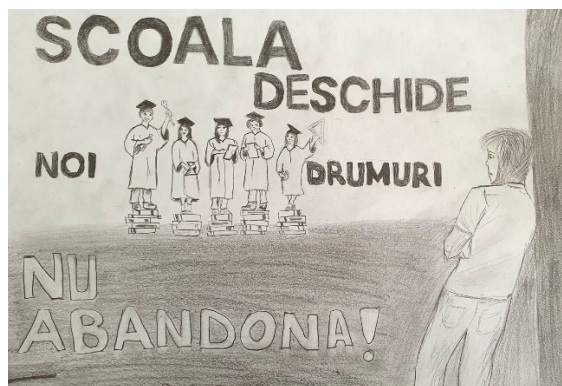 SCOALA
DESCHIDE
NOI DRUMURI
NU
ABANDONA!